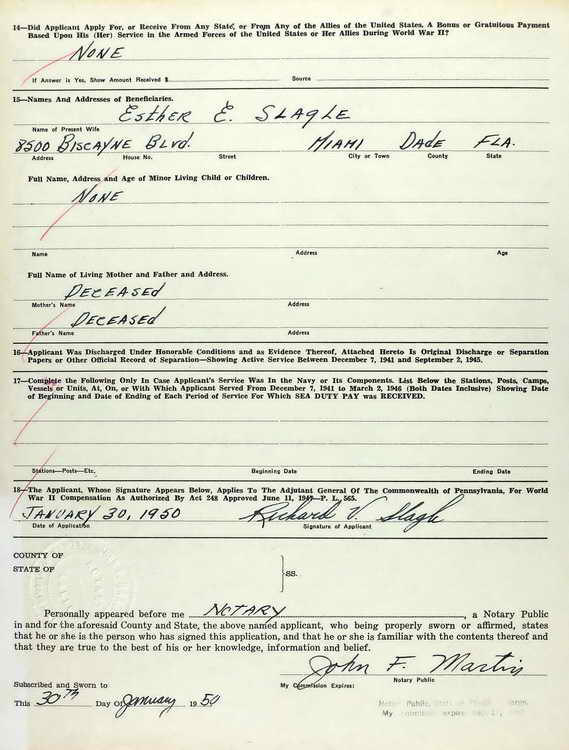 14—Did Applicant Apply For, or Receive From Any State, or From Any of the Allies of the United States, A Bonus or Gratuitous Payment
Based Upon His (Her) Service in the Armed Forces of the United States or Her Allies During World War II?
NONE
If Answer is Yes, Show Amount Received $ Source
15—Names And Addresses of Beneficiaries.
EstHER E. SLAGLE
Name of Present Wife
8500 BISCAYNE BLVD. MIAMI DADE FLA.
Address House No. Street City or Town County State
Full Name, Address and Age of Minor Living Child or Children.
NONE
Name Address Age
Full Name of Living Mother and Father and Address.
DECEASEd
Mother's Name Address
DECEASEd
Father's Name Address
16—Applicant Was Discharged Under Honorable Conditions and as Evidence Thereof, Attached Hereto Is Original Discharge or Separation
Papers or Other Official Record of Separation—Showing Active Service Between December 7, 1941 and September 2, 1945.
17—Complete the Following Only In Case Applicant's Service Was In the Navy or Its Components. List Below the Stations, Posts, Camps,
Vessels or Units, At, On, or With Which Applicant Served From December 7, 1941 to March 2, 1946 (Both Dates Inclusive) Showing Date
of Beginning and Date of Ending of Each Period of Service For Which SEA DUTY PAY was RECEIVED.
Stations—Posts—Etc. Beginning Date Ending Date
18—The Applicant, Whose Signature Appears Below, Applies To The Adjutant General Of The Commonwealth of Pennsylvania, For World
War II Compensation As Authorized By Act 248 Approved June 11, 1947—P. L. 565.
JANUARY 30, 1950 Richard V. Slagle
Date of Application Signature of Applicant
COUNTY OF
STATE OF
ss.
Personally appeared before me NOTARY, a Notary Public
in and for the aforesaid County and State, the above named applicant, who being properly sworn or affirmed, states
that he or she is the person who has signed this application, and that he or she is familiar with the contents thereof and
that they are true to the best of his or her knowledge, information and belief.
John F. Martin
Subscribed and Sworn to My Commission Expires: Notary Public
This 30th Day Of January 1950
Notary Public, State of
My commission expires